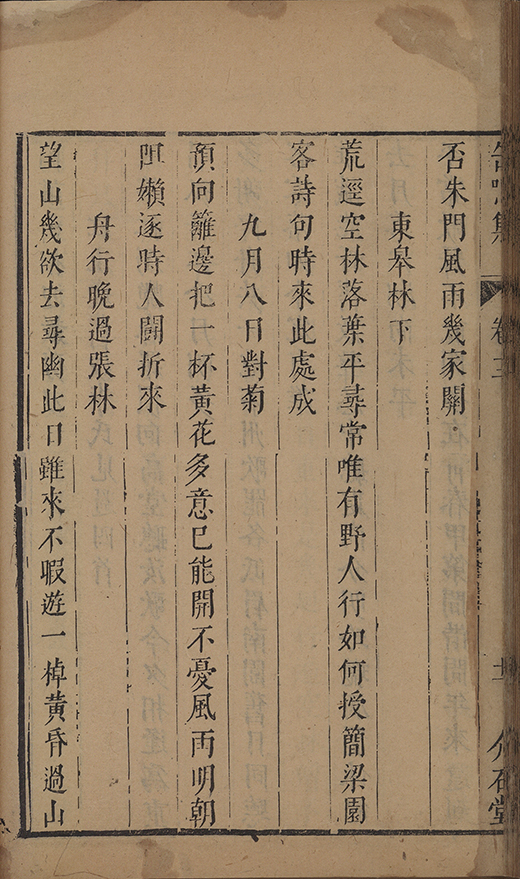 否朱門風雨幾家關
東皋林下
荒逕空林落葉平尋常唯有野人行如何授簡梁園
客詩句時來此處成
九月八日對菊
預向籬邊把一杯黃花多意已能開不憂風雨明朝
阻嬾逐時人鬪折來
舟行晚過張林
望山幾欲去尋幽此日雖來不暇遊一棹黃昏過山
集 卷三 十二 介石堂